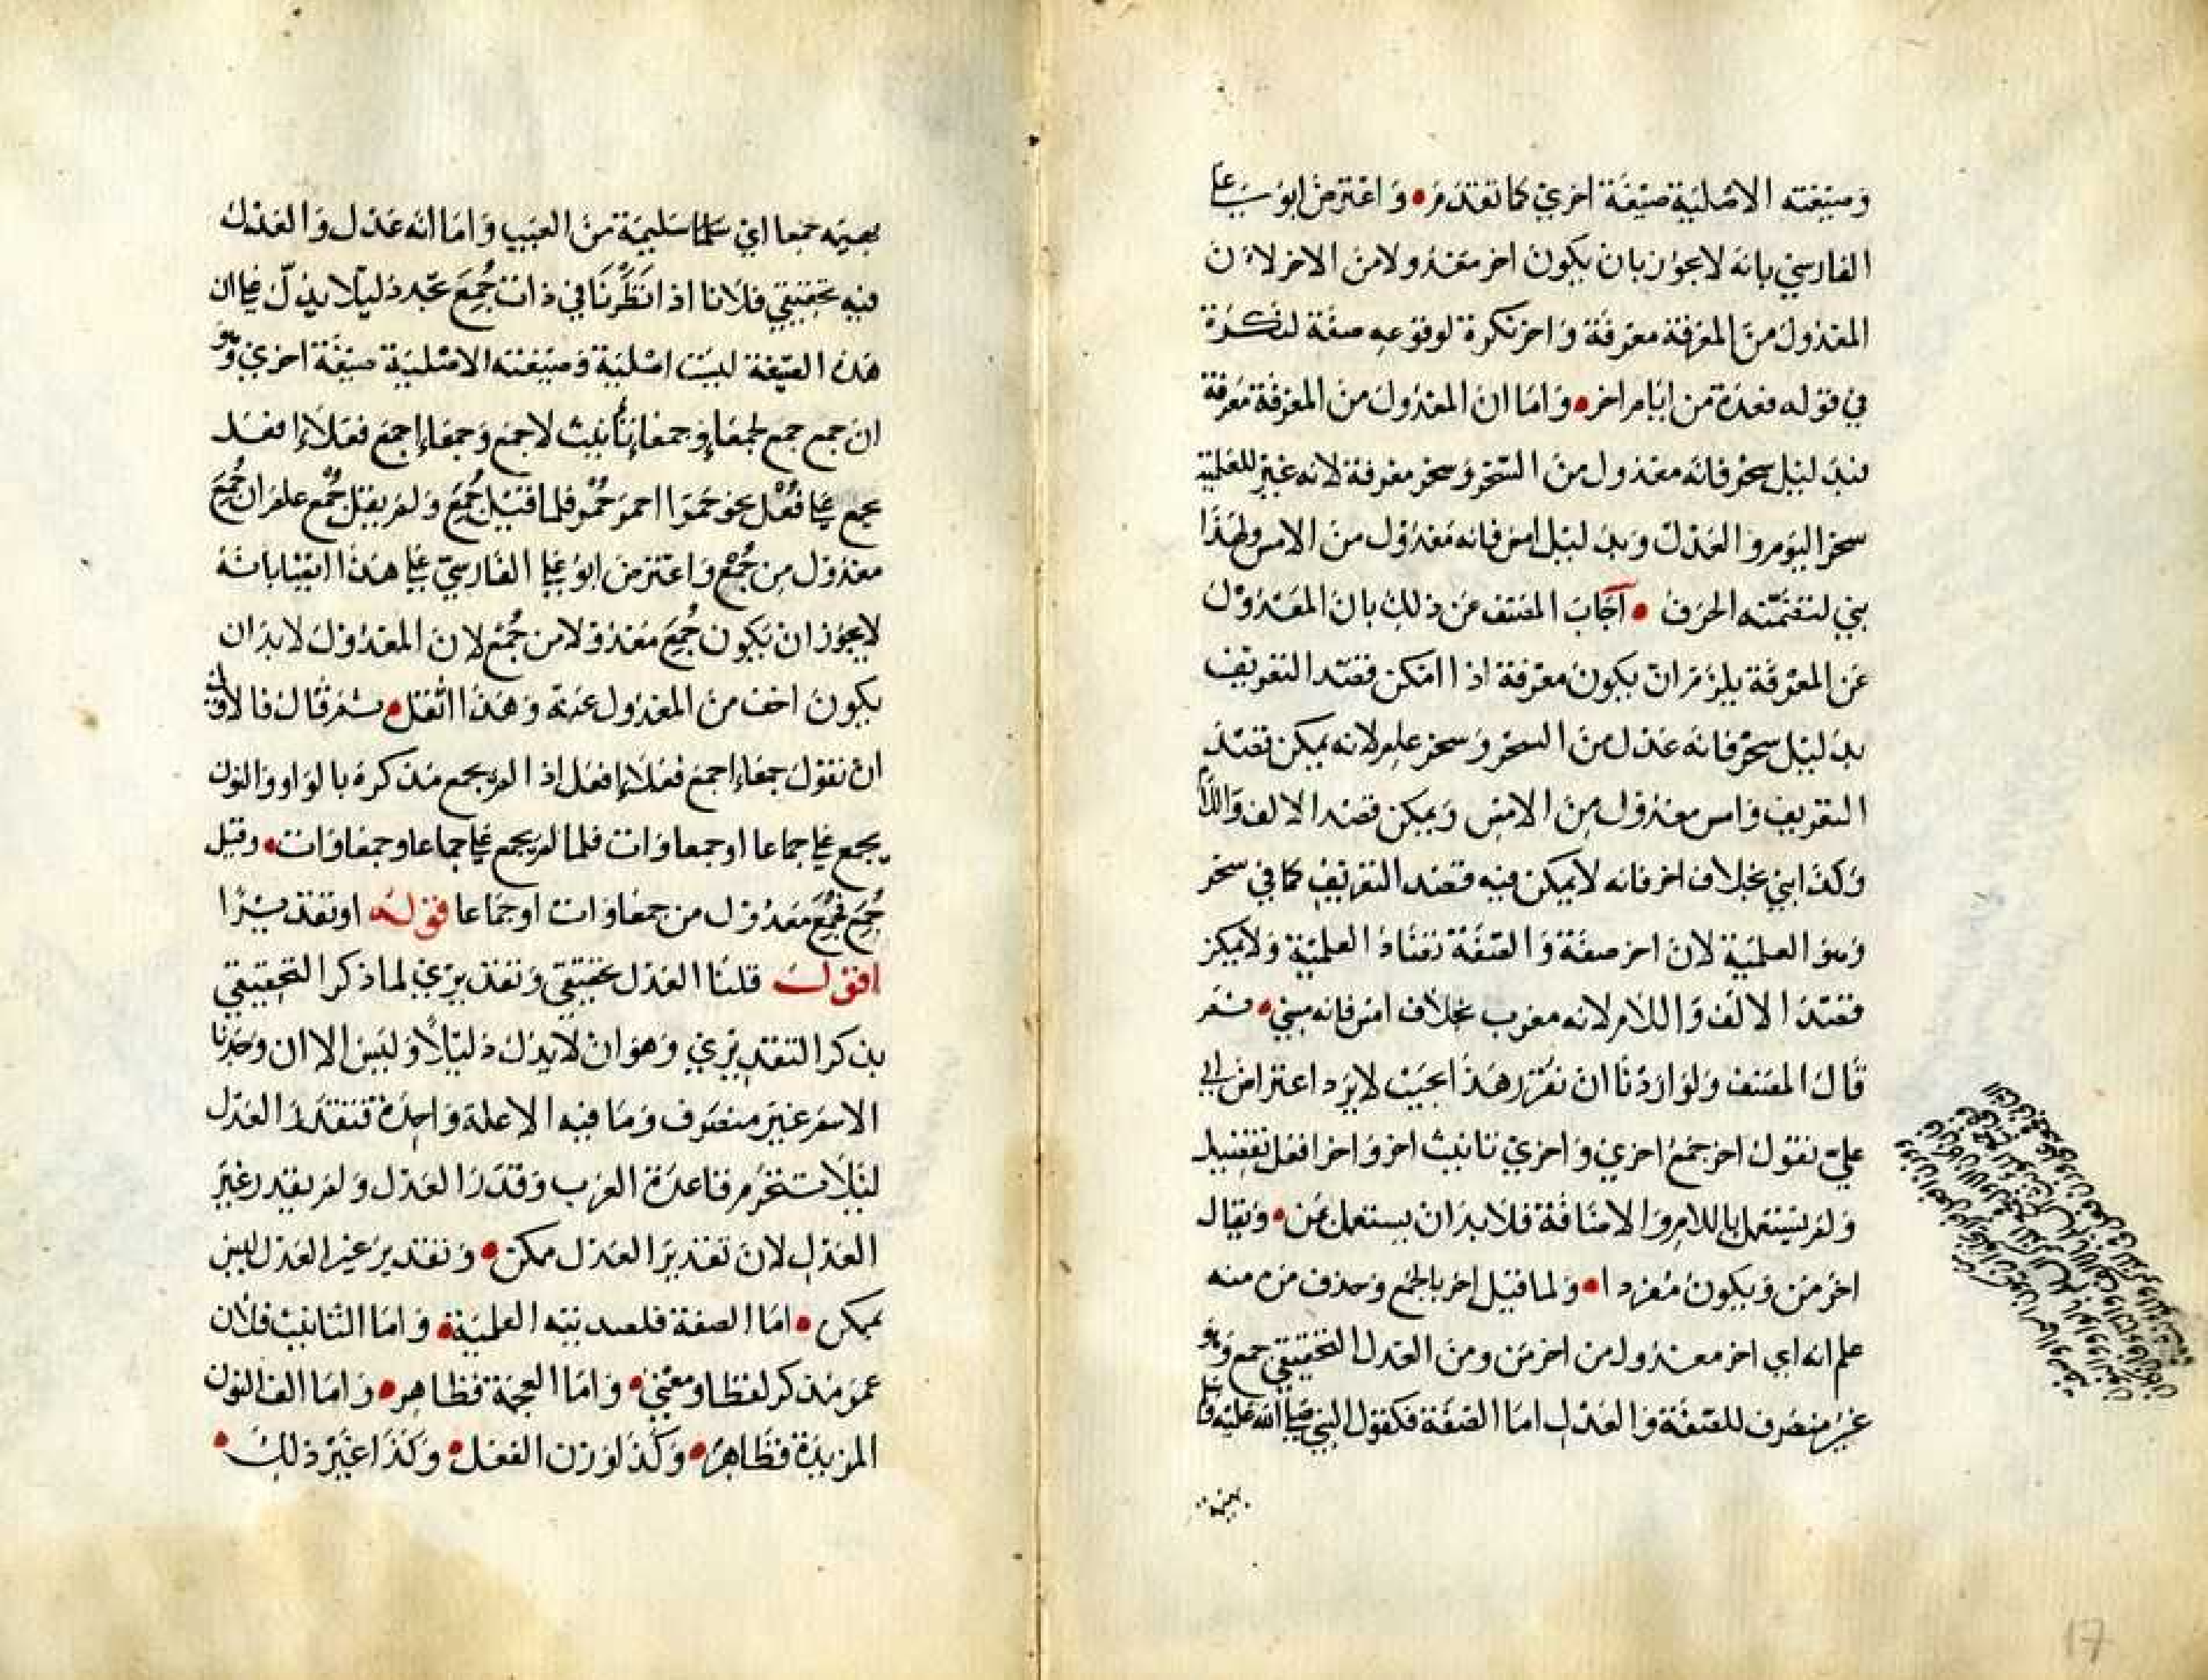 وصيغته الاصلية صيغة اخري كما تقدم واعترض ابو علي
الفارسي بانه لا يجوز بان يكون اخر معدولا من الاخر لان
المعدول من المعرفة معرفة واخر نكرة لوقوعه صفة لنكرة
في قوله فعدة من ايام اخر واما ان المعدول من المعرفة معرفة
فبدليل سحر فانه معدول من السحر وسحر معرفة لانه غير للعلمية
سحر اليوم والعدل وبدليل امس فانه معدول من الامس ولهذا
بني لتضمنه الحرف اجاب المصنف عن ذلك بان المعدول
عن المعرفة يلزم ان يكون معرفة اذا امكن قصد التعريف
بدليل سحر فانه عدل من السحر وسحر علم لانه يمكن قصد
التعريف وامس معدول من الامس ويمكن قصد الالف واللام
وكذا بني بخلاف اخر فانه لا يمكن فيه قصد التعريف كما في سحر
وهو العلمية لان اخر صفة والصفة تضاد العلمية ولا يمكن
قصد الالف واللام لانه معرب بخلاف امس فانه مبني ثم
قال المصنف ولو اردنا ان نقرر هذا بحيث لا يرد اعتراض ابي
علي نقول اخر جمع اخري واخري تانيث اخر واخر افعل تفضيل
ولم يستعمل باللام والاضافة فلا بد ان يستعمل بمن ويقال
اخر من ويكون مفردا ولما قيل اخر بالجمع وحذف من منه
علم انه اي اخر معدول من اخر من ومن العدل التحقيقي جمع وهو
غير منصرف للصفة والعدل اما الصفة فكقول النبي صلي الله عليه وسلم
بهيمة
بهيمة جمعا اي سليمة من العيب واما انه عدل والعدل
فيه تحقيقي فلانا اذا نظرنا في ذات جمع نجد دليلا يدل علي ان
هذه الصيغة ليست اصلية وصيغته الاصلية صيغة اخري وهو
ان جمع جمع لجمعاء وجمعاء تانيث لاجمع وجمعاء اجمع فعلاء افعل
يجمع علي فعل نحو حمراء احمر حمر فلما قيل جمع ولم يقل جمع علم ان جمع
معدول من جمع واعترض ابو علي الفارسي علي هذا ايضا بانه
لا يجوز ان يكون جمع معدولا من جمع لان المعدول لا بد ان
يكون اخف من المعدول عنه وهذا اثقل ثم قال فالاولي
ان نقول جمعاء اجمع فعلاء افعل اذا لم يجمع مذكره بالواو والنون
يجمع علي جماعا او جمعاوات فلما لم يجمع علي جماعا وجمعاوات وقيل
جمع فجمع معدول من جمعاوات او جماعا قوله او تقديرا
اقول قلنا العدل تحقيقي وتقديري لما ذكر التحقيقي
يذكر التقديري وهو ان لا يدل دليلا وليس الا ان وجدنا
الاسم غير منصرف وما فيه الا علة واحدة فنقدر العدل
لئلا تنخرم قاعدة العرب وقدر العدل ولم يقدر غير
العدل لان تقدير العدل ممكن وتقدير غير العدل ليس
بممكن اما الصفة فلضديته العلمية واما التانيث فلان
عمر مذكر لفظا ومعني واما العجمة فظاهر واما الف النون
المزيدة فظاهر وكذا وزن الفعل وكذا غير ذلك
17